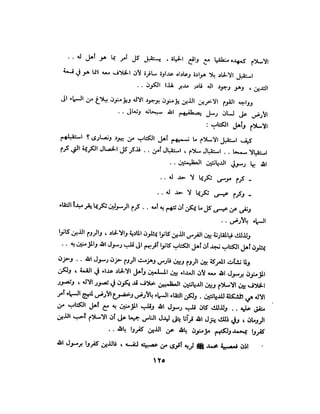 الاسلام كعهده منطقيا مع واقع الحياة . يستقبل كل أمر بما هو أهل له . .
استقبل الالحاد بلا هوادة وعاداه عداوة سافرة لأن الخلاف معه انما هو في قمة
التدين ، وهو وجود اله قادر مدبر لهذا الكون . .
وواجه القوم الآخرين الذين يؤمنون بوجود الاله ويؤمنون ببلاغ من السماء الى
الأرض على لسان رسل يصطفيهم الله سبحانه وتعالى . .
الاسلام وأهل الكتاب :
كيف استقبل الاسلام ما نسميهم أهل الكتاب من يهود ونصارى ؟ استقبلهم
استقبالا سمحا . . استقبال سلام ، استقبال أمن . . فذكر كل الخصال الكريمة التي كرم
الله بها رسولي الديانتين العظيمتين . .
ـ كرم موسى تكريما لا حد له . .
ـ وكرم عيسى تكريما لا حد له . .
ونفى عن عيسى كل ما يمكن أن تتهم به أمه . . كرم الرسولين تكريما يقر مبدأ التقاء
السماء بالأرض . .
ولذلك فبالمقارنة بين الفرس الذين كانوا يمثلون المادية والالحاد ، والروم الذين كانوا
يمثلون أهل الكتاب نجد أن أهل الكتاب كانوا أقربهم الى قلب رسول الله والمؤمنين به . .
ولما نشأت المعركة بين الروم وبين فارس وهزمت الروم حزن رسول الله . . وحزن
المؤمنون برسول الله معه لأن العداء بين المسلمين وأهل الالحاد عداء في القمة ، ولكن
الخلاف بين الاسلام وبين الديانتين العظميين خلاف قد يكون في تصور الاله ، وتصور
الاله هي المشكلة للديانتين . ولكن التقاء السماء بالأرض وخضوع الأرض لمنهج السماء أمر
متفق عليه . . ولذلك كان قلب رسول الله وقلب المؤمنين به مع أهل الكتاب من
الرومان ، وفي ذلك ينزل الله قرآنا يتلى ليدل الناس جميعا على أن الاسلام أحب الذين
كفروا بمحمد ولكنهم مؤمنون بالله عن الذين كفروا بالله . .
اذن فعصبية محمد ﷺ لربه أقوى من عصبيته لنفسه ، فالذين كفروا برسول الله
١٢٥